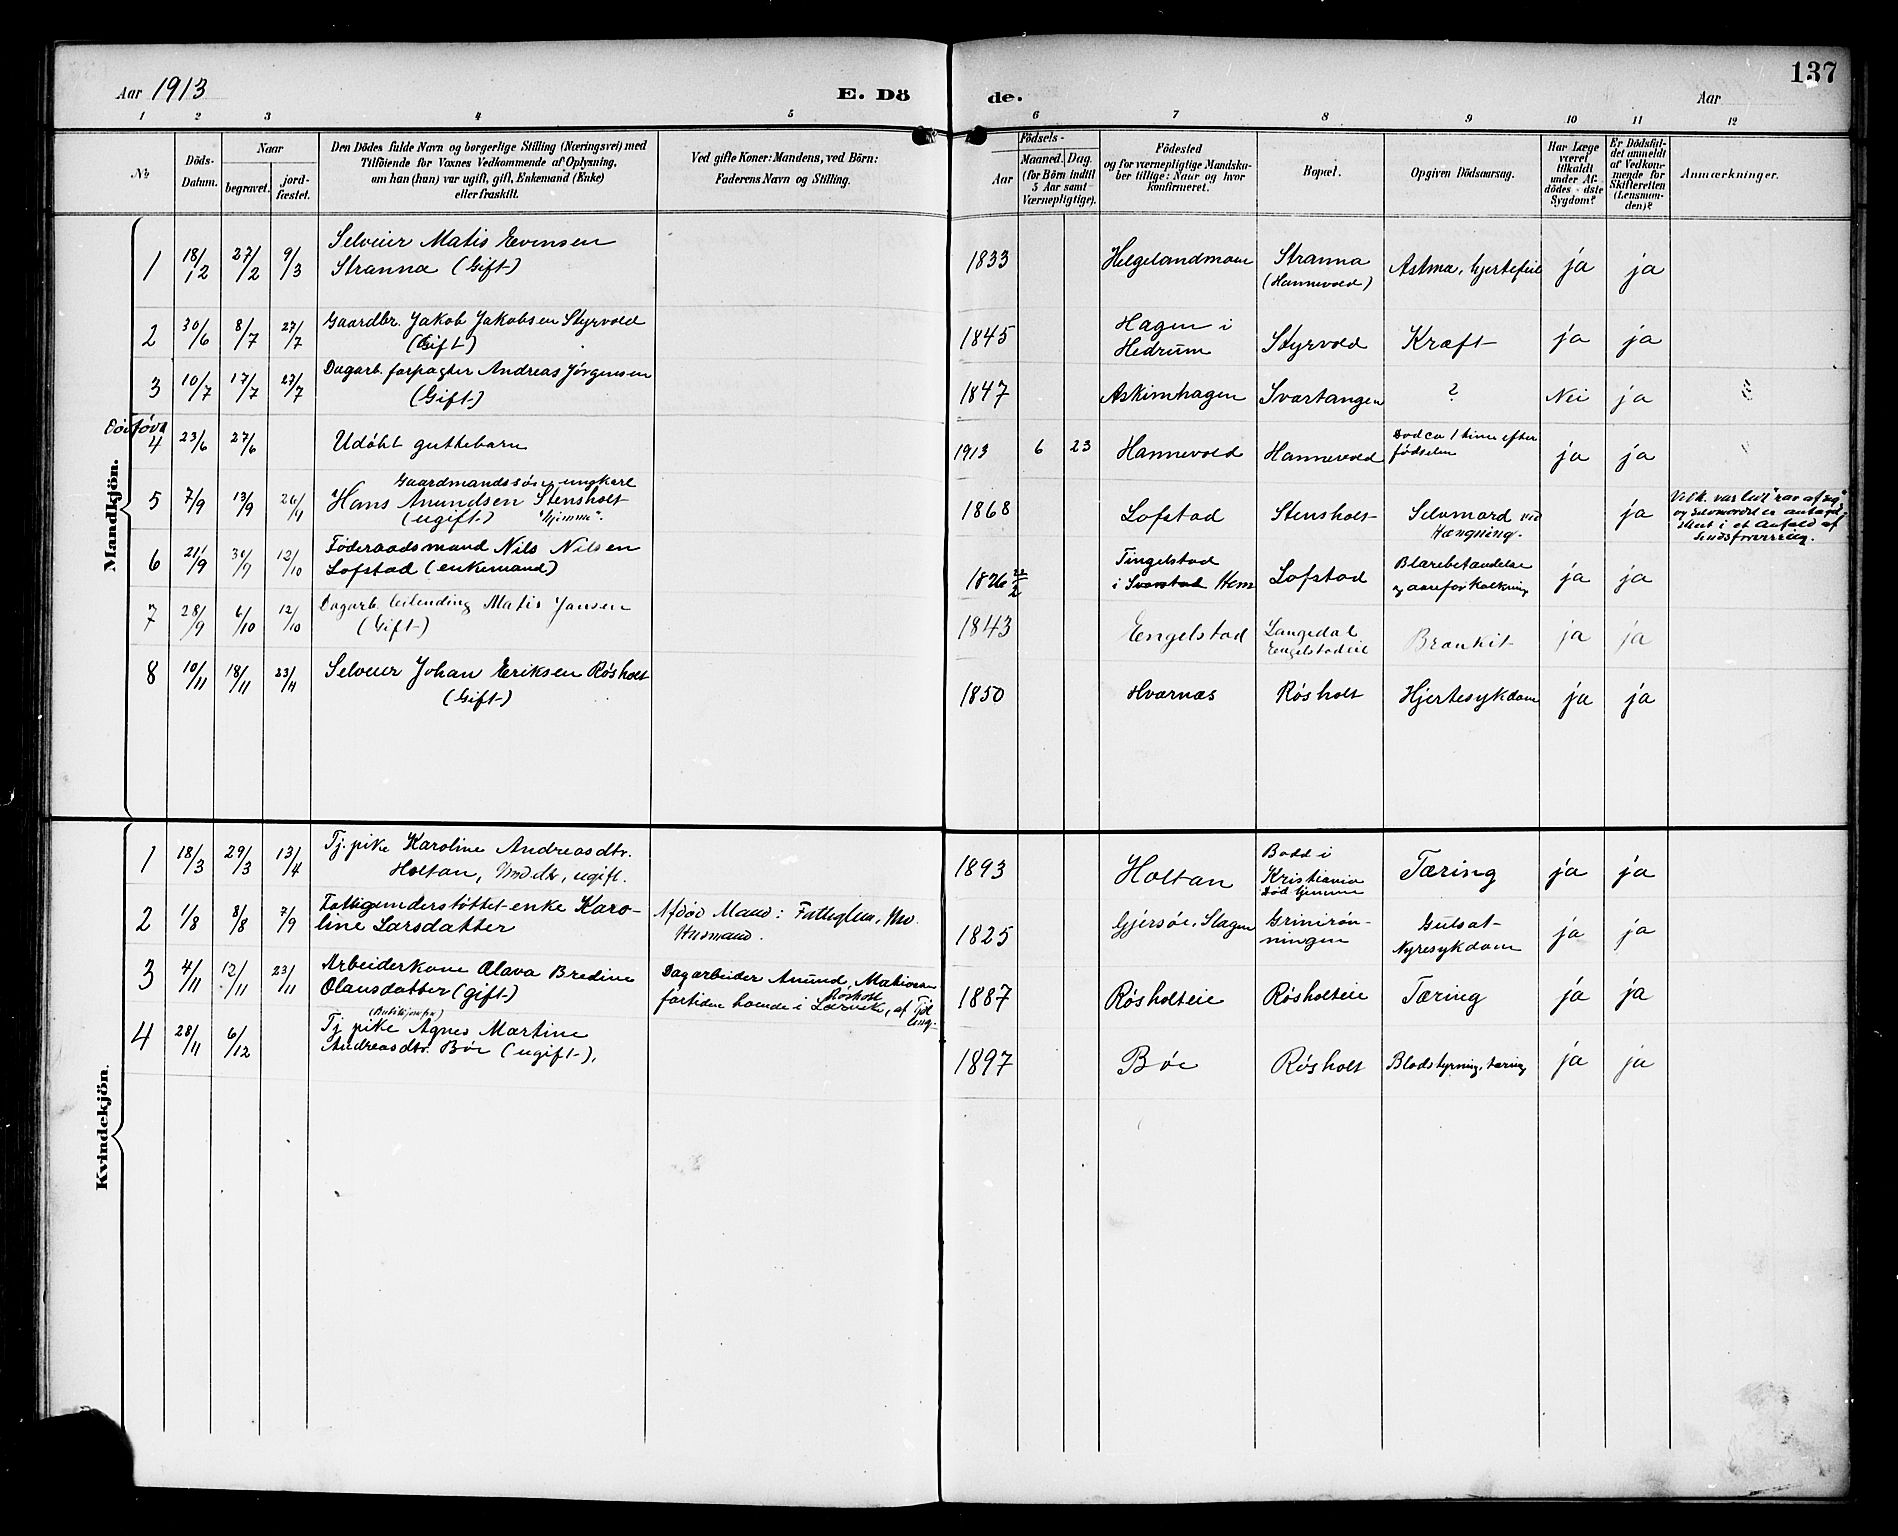 Aar 1913
E. Dö
de.
Aar
137
1 2 3 4 5 6 7 8 9 10 11 12
No
Döds-Datum.
Naar
begravet.
jord-fæstet.
Den Dödes fulde Navn og borgerlige Stilling (Næringsvei) med
Tilföiende for Voxnes Vedkommende af Oplysning,
om han (hun) var ugift, gift, Enkemand (Enke)
eller fraskilt.
Ved gifte Koner: Mandens, ved Börn:
Faderens Navn og Stilling.
Födsels-
Aar
Maaned. Dag.
(for Börn indtil
5 Aar samt
Værnepligtige).
Födested
og for værnepligtige Mandska-
ber tillige: Naar og hvor
konfirmeret.
Bopæl.
Opgiven Dödsaarsag.
Har Læge
været
tilkaldt
under Af-
dödes sidste
Sygdom?
Er Dödsfal-
det anmeldt
af Vedkom-
mende for
Skifteretten
(Lensman-
den)?
Anmærkninger.
Mandkjön.
1 18/12 27/2 9/3 Selveier Matis Evensen
Stranna (Gift)
1833 Helgelandmoen Stranna
(Hannevold) Astma, hjertefeil ja ja
2 30/6 8/7 27/7 Gaardbr. Jakob Jakobsen Styrvold
(Gift)
1845 Hagen i
Hedrum Styrvold Kræft ja ja
3 10/7 17/7 27/7 Dagarb. forpagter Andreas Jørgensen
(Gift)
1847 Askimhagen Svartangen ? Nei ja
4 23/6 27/6 Udøbt guttebarn
1913 6 23 Hannevold Hannevold Død ca 1 time efter
fødselen ja ja
5 7/9 13/9 26/9 Gaardmandssøn, ungkarl
Hans Anundsen Stensholt
(ugift) "hjemme".
1868 Lofstad Stensholt Selvmord ved
Hængning. ja
6 21/9 30/9 12/10 Føderaadsmand Nils Nilsen
Lofstad (enkemand)
1826 22/2 Tingelstad
i Svarstad Hem Lofstad Blærebetændelse
og aareforkalkning ja ja
7 28/9 6/10 12/10 Dagarb. leilending Matis Jansen
(Gift)
1843 Engelstad Langedal
Engelstadeie Bronkit ja ja
8 10/11 18/11 23/11 Selveier Johan Eriksen Røsholt
(Gift)
1850 Hvarnæs Røsholt Hjertesykdom ja ja
Kvindekjön.
1 18/3 29/3 13/4 Tj. pike Karoline Andreasdtr.
Holtan, ugift.
1893 Holtan Bodd i
Kristiania
Død hjemme Tæring ja ja
2 1/8 8/8 7/9 Fattigunderstøttet enke Karo-
line Larsdatter
Afdød Mand: Fattiglem,
Husmand.
1825 Gjersøe, Slagen Grinirøn-
ningen Gulsot
Nyresykdom ja ja
3 4/11 12/11 23/11 Arbeiderkone Olava Bredine
Olausdatter (gift)
Dagarbeider Anund Mathisen
Røsholt
fortiden boende i Larvik, af Tjøl
ling.
1887 Røsholteie Røsholteie Tæring ja ja
4 28/11 6/12 Tj. pike Agnes Martine
Andreasdtr. Bøe (ugift),
1897 Bøe Røsholt Blodstyrtning, tæring ja ja